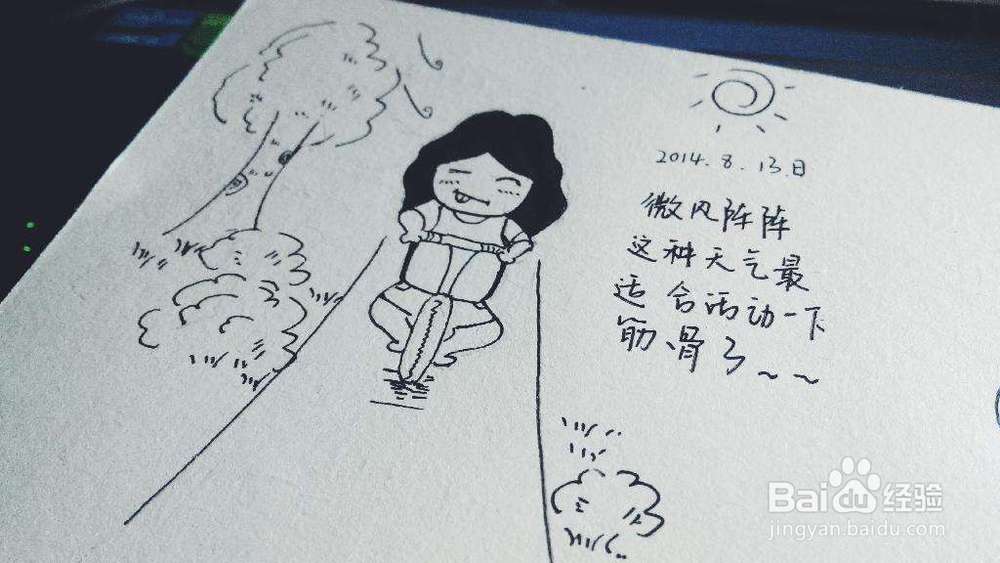 2014.8.13.日
微风阵阵
这种天气最
适合活动一下
筋骨了~~
Baidu经验
jingyan.baidu.com